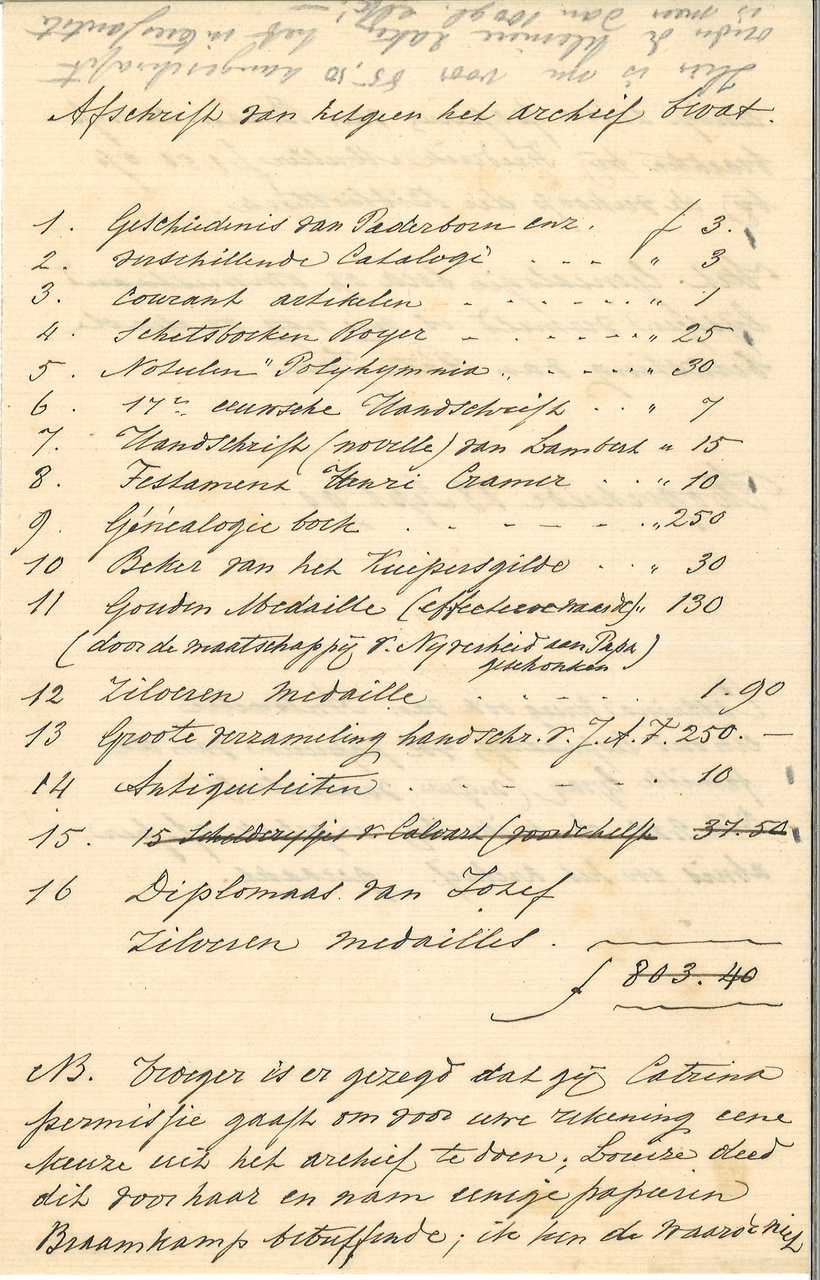 Hier is op voor 85,50 aangeschaft
onder de kleinere zaken het interessantste
is meer dan 100 gl. elk! —
Afschrift van hetgeen het archief bevat.
1. Geschiedenis van Paderborn enz. f 3.
2. verschillende Catalogi - - - " 3
3. courant artikelen - - - - - " 1
4. Schetsboeken Royer - - - - - " 25
5. Notulen "Polyhymnia" - - - " 30
6. 17de eeuwsche Handschrift - - " 7
7. Handschrift (novelle) van Lambert " 15
8. Testament Henri Cramer - - " 10
9. Génealogie boek - - - - - " 250
10 Beker van het Kuipersgilde - - " 30
11 Gouden Medaille (effectieve waarde) " 130
(door de maatschappij v. Nyverheid aan Papa
geschonken)
12 Zilveren medaille - - - - 1.90
13 Groote verzameling handschr. v. J. A. F. 250. —
14 Antiquiteiten . - - - - . 10
15. 15 Schilderijtjes v. Calvart (voor de helft 37.50
16 Diplomaas van Jozef
Zilveren medailles.
f 803.40
NB. Vroeger is er gezegd dat gij Catrina
permissie gaaft om voor uwe rekening eene
keuze uit het archief te doen; Louize deed
dit voor haar en nam eenige papieren
Braamkamp betreffende; ik ken de waarde niet